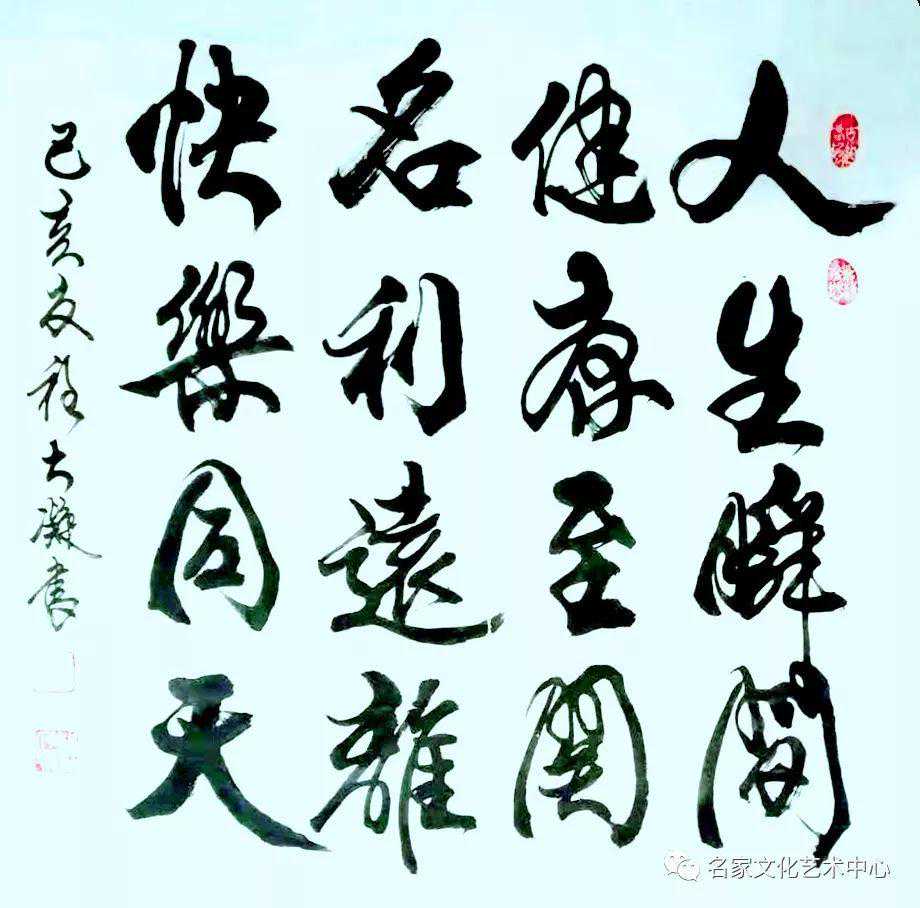 人生瞬間
健存至関
名利遠離
快樂同天
己亥友程大凝書
名家文化艺术中心